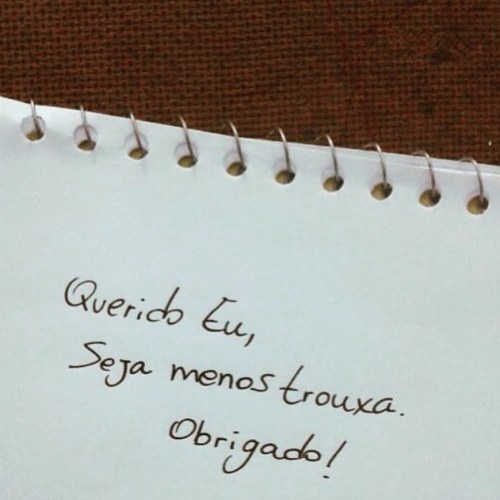 Querido Eu,
Seja menos trouxa.
Obrigado!